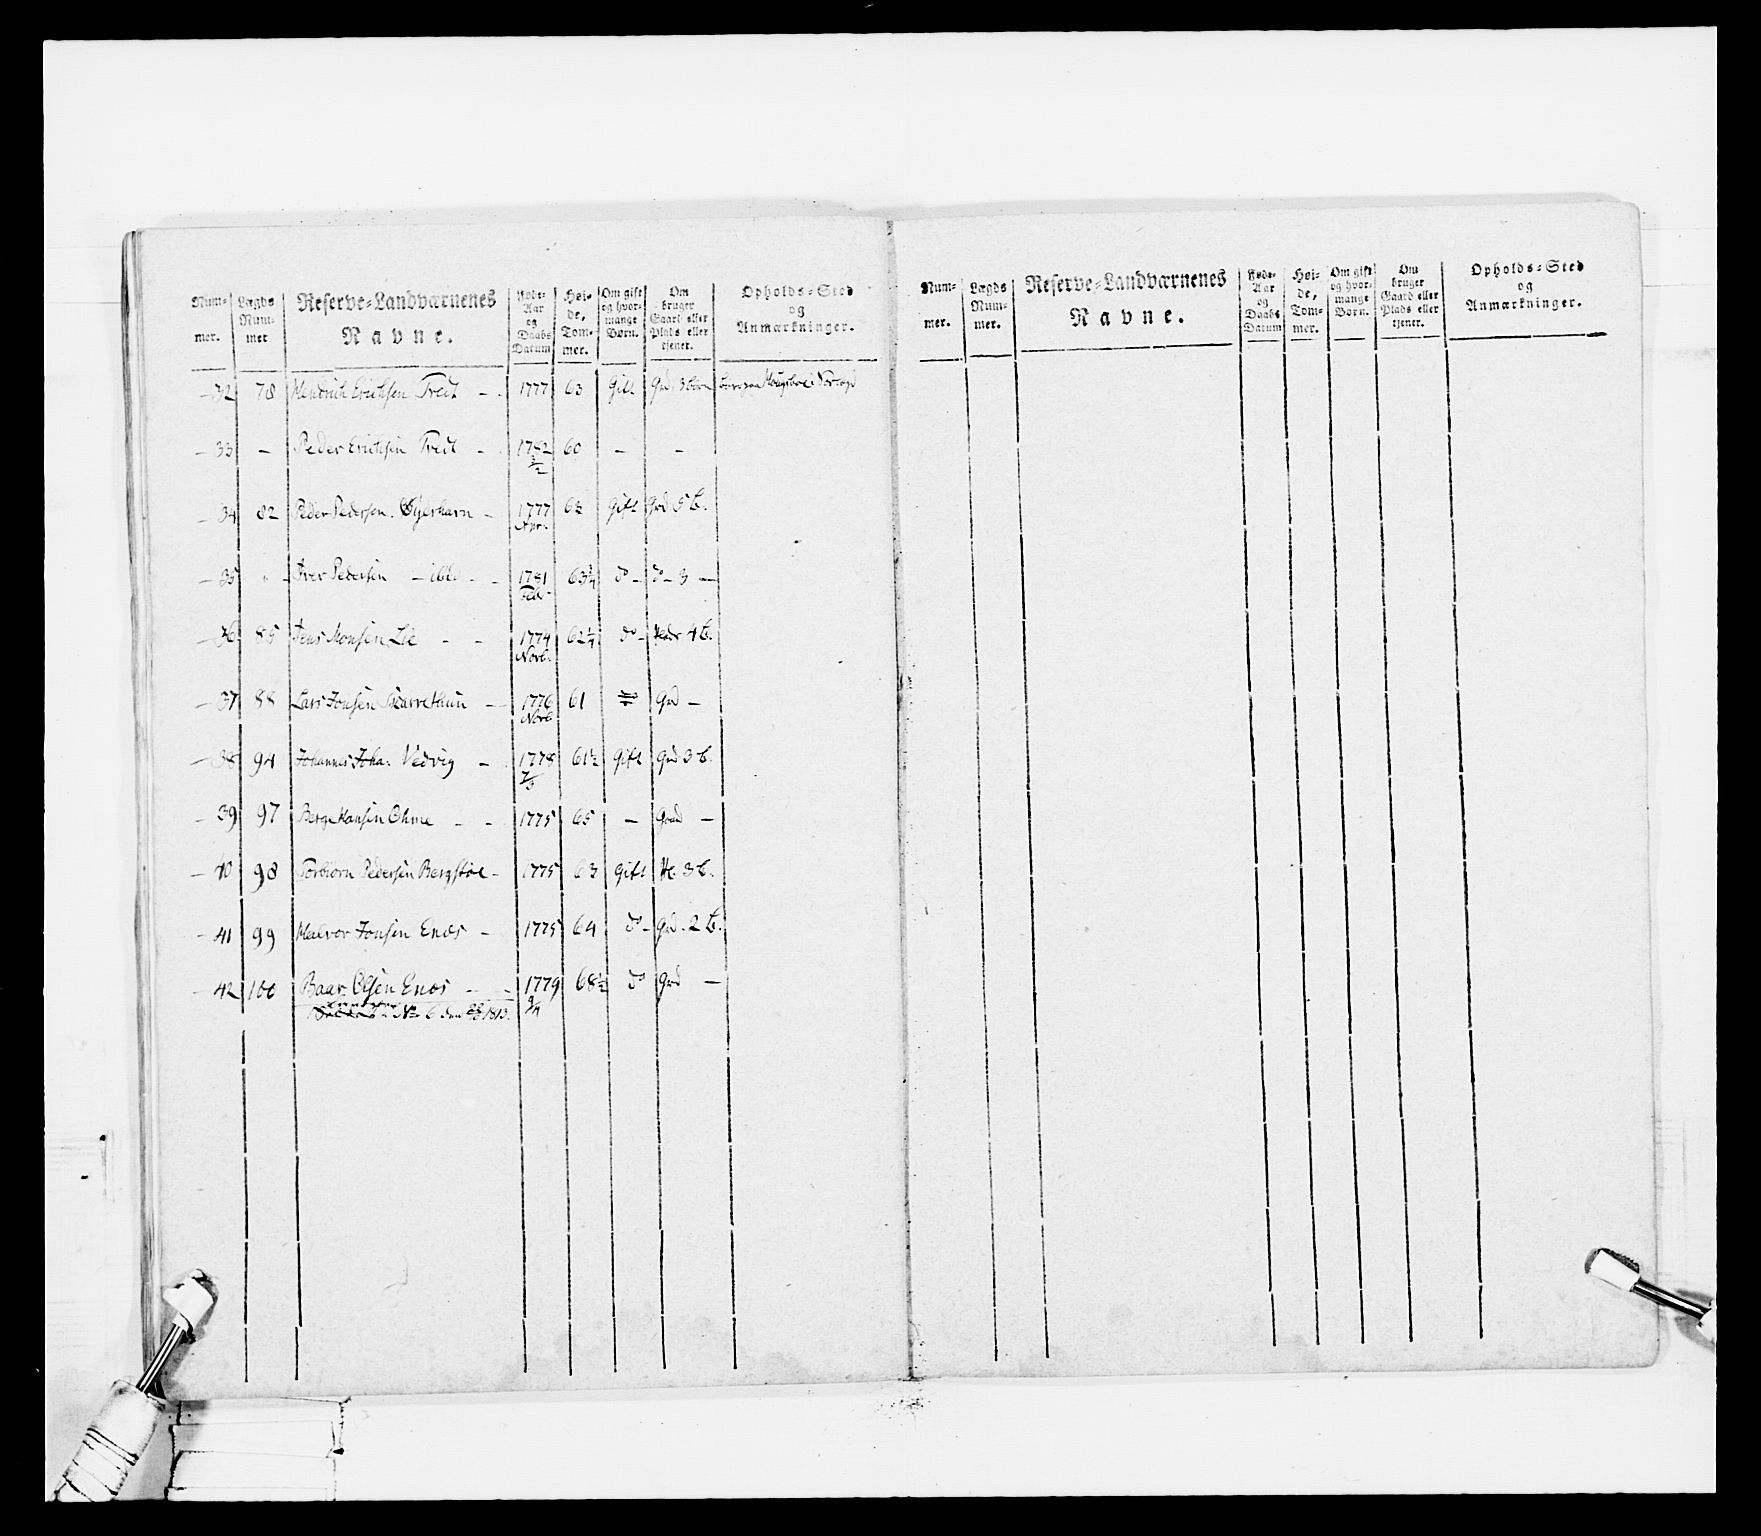 Num-
mer.
Lægds
Num-
mer
Reserve-Landværnenes
Navne.
Føde-
Aar
og
Daabs
Datum
Høi-
de,
Tom-
mer.
Om gift
og hvor-
mange
Børn.
Om
bruger
Gaard eller
Plads eller
tjener.
Opholds-Sted
og
Anmærkninger.
—32 78 Hendrich Erichsen Tredt — . 1777 63 Gift Grd 3 Børn
—33 — Peder Erichsen Tredt — . 1782 60 — —
1/2
—34 82 Peder Pedersen — 1777 62 Gift Grd 5 b.
—35 " Iver Pedersen — ibid — — 1781 63 3/4 do — do — 3 —
Febr.
—36 85 Jens Monsen Lie — — 1774 62 1/4 do — 4 b.
Novb.
—37 88 Lars Jonsen — 1776 61 Grd —
Novb.
—38 94 Johannes Joha: Vedvig — 1778 61 1/2 Gift Grd 3 b.
7/3
—39 97 Berge Hansen Ohme — — 1775 65 — Grd —
—40 98 Torbiørn Pedersen — 1775 63 Gift 3 b.
—41 99 Halvor Jonsen Enæs — 1775 64 do — Grd . 2 b.
—42 100 Baar Olsen Enæs — — 1779 68 1/2 do Grd —
9/4
No 6 den 1813.
Num-
mer.
Lægds
Num-
mer.
Reserve-Landværnenes
Navne.
Føde-
Aar
og
Daabs
Datum
Høi-
de,
Tom-
mer.
Om gift
og hvor-
mange
Børn.
Om
bruger
Gaard eller
Plads eller
tjener.
Opholds-Sted
og
Anmærkninger.